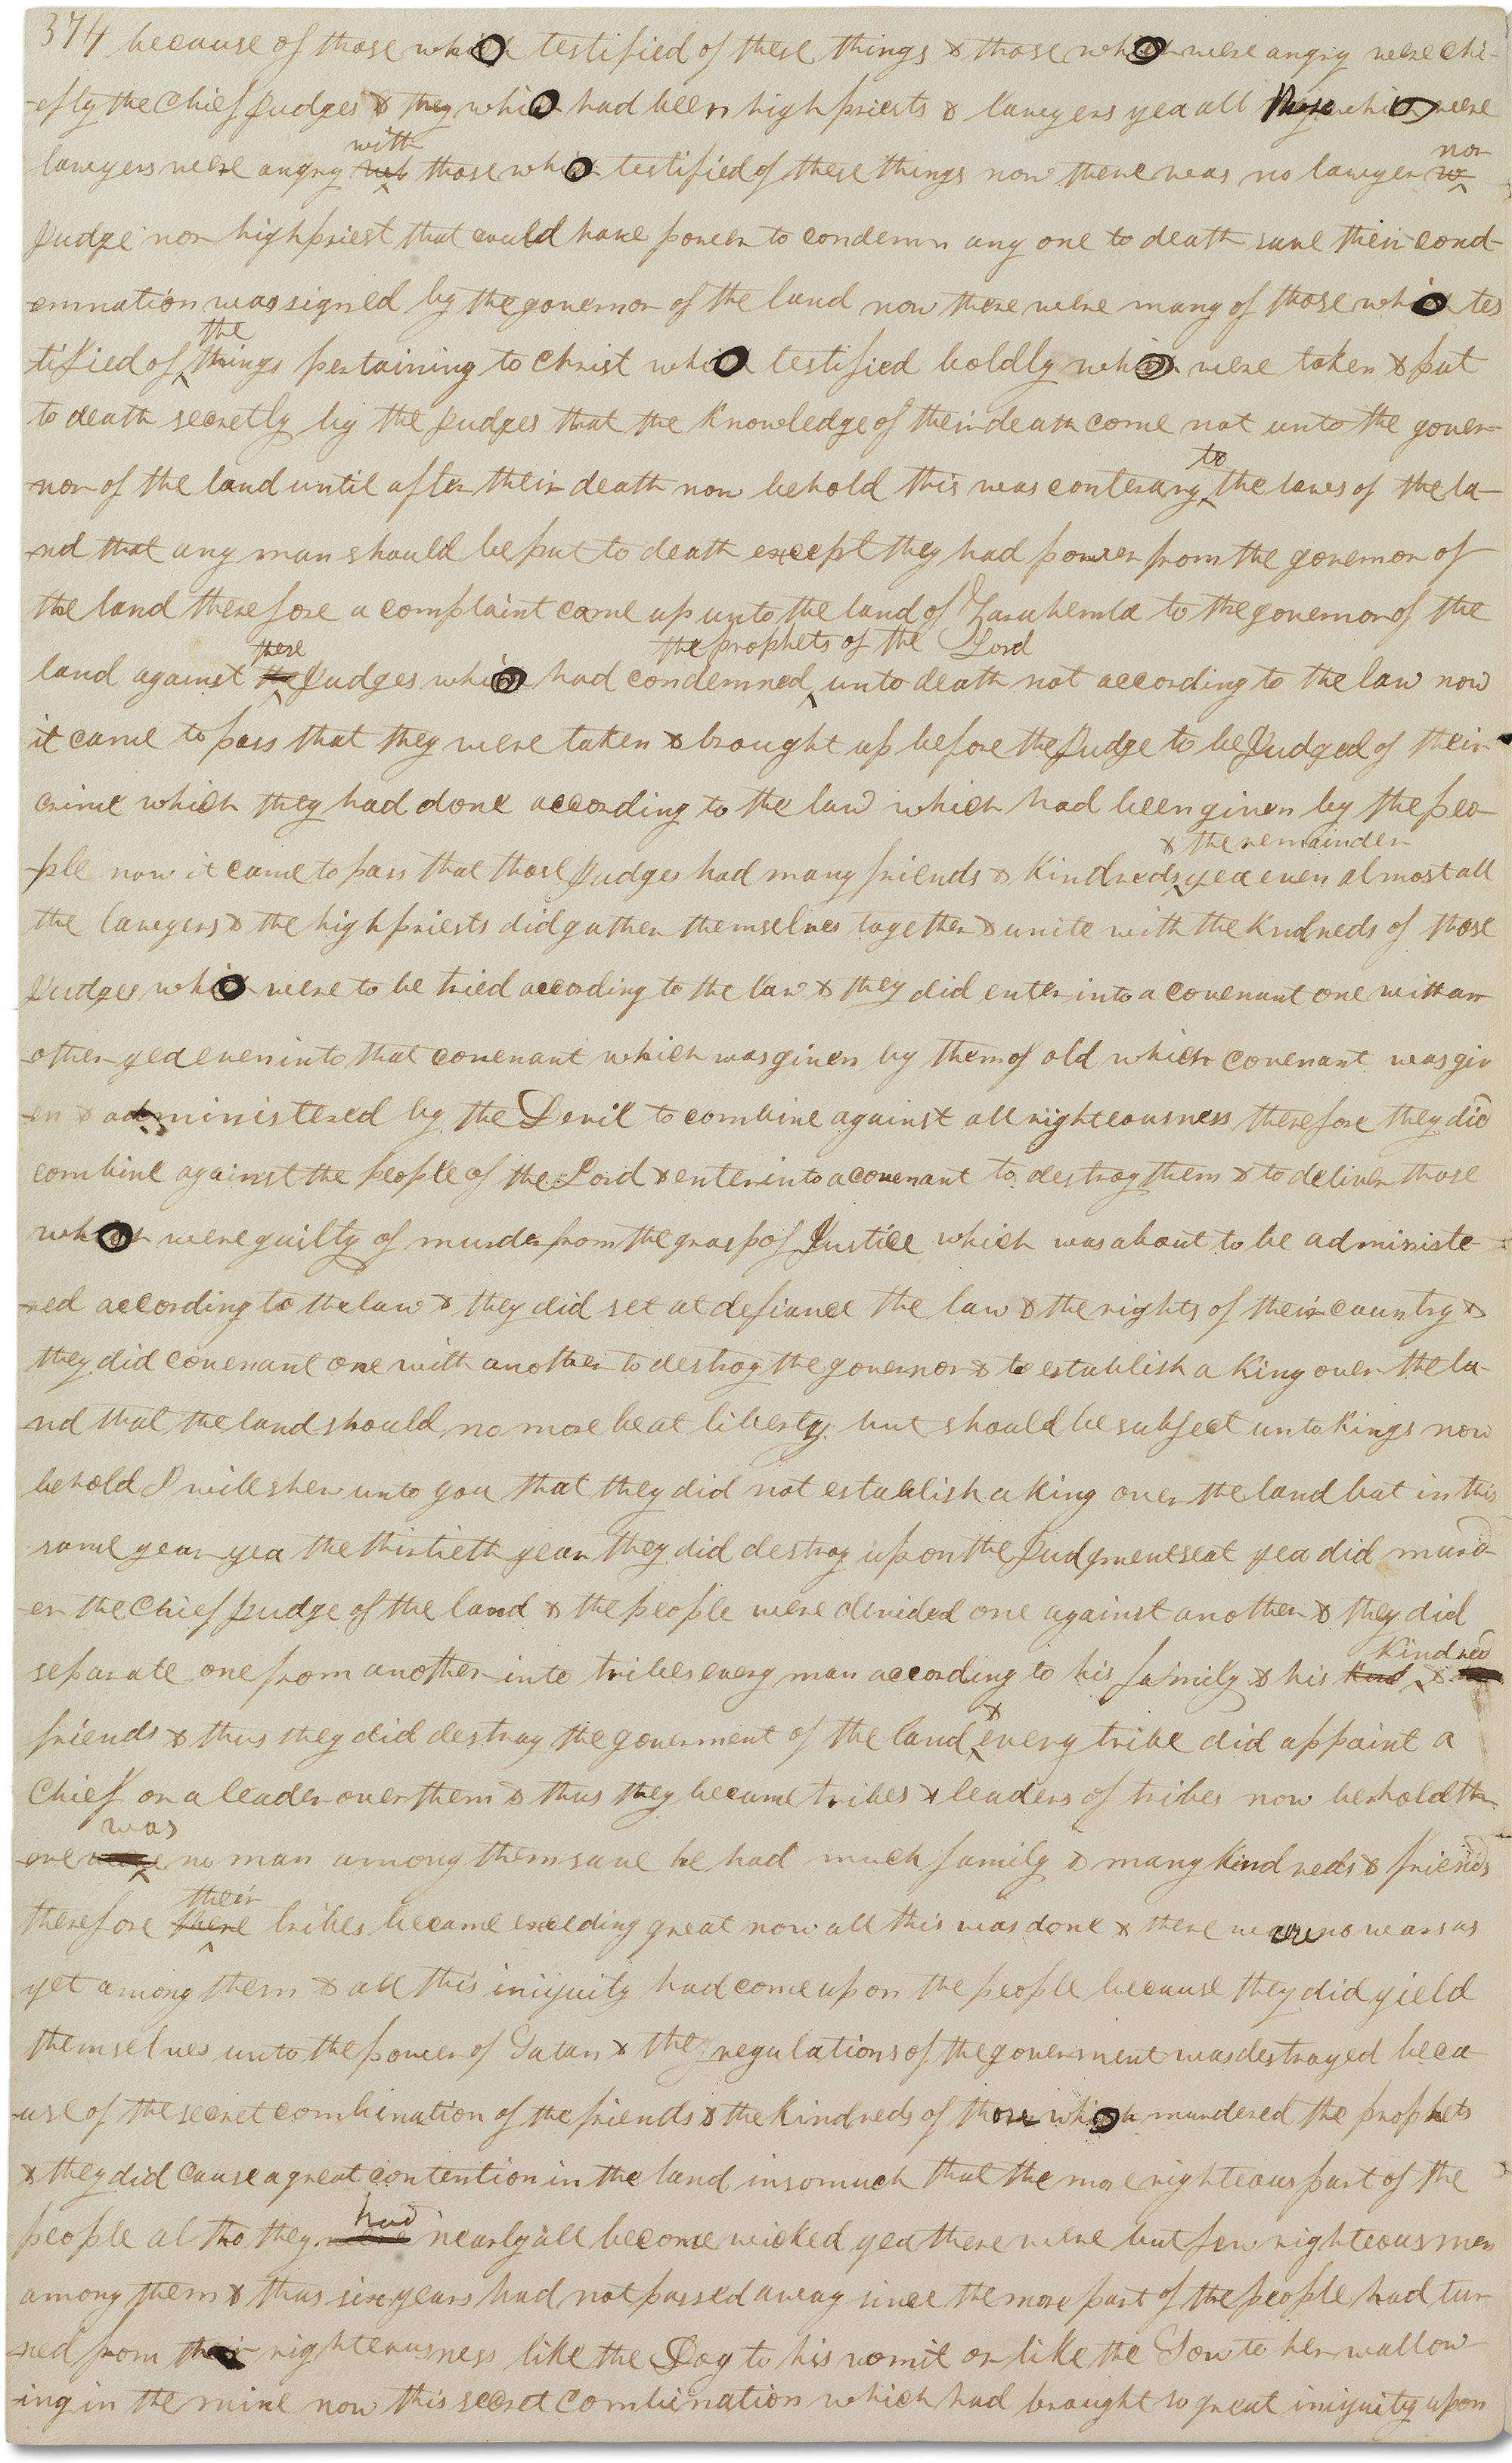 374 because of those who testified of these things & those who were angry were chi-
-efly the Chief Judges & they who had been high priests & lawyers yea all those who were
with
lawyers were angry those who testified of these things now there was no lawyer nor
Judge nor high priest that could have power to condemn any one to death save their cond-
-emnation was signed by the governor of the land now there were many of those who tes
the
tified of things pertaining to Christ who testified boldly who were taken & put
to death secretly by the Judges that the knowledge of their death come not unto the gover-
to
nor of the land until after their death now behold this was conterary the laws of the la-
-nd that any man should be put to death except they had power from the governor of
the land therefore a complaint came up unto the land of Zarahemla to the governor of the
these the prophets of the Lord
land against Judges who had condemned unto death not according to the law now
it came to pass that they were taken & brought up before the Judge to be Judged of their
crime which they had done according to the law which had been given by the peo-
& the remainder
-ple now it came to pass that those Judges had many friends & kindreds yea even almost all
the lawyers & the high priests did gather themselves together & unite with the kindreds of those
Judges who were to be tried according to the law & they did enter into a covenant one with an-
-other yea even into that covenant which was given by them of old which covenant was giv
-en & administered by the Devil to combine against all righteousness therefore they did
combine against the people of the Lord & enter into a covenant to destroy them & to deliver those
who were guilty of murder from the grasp of Justice which was about to be administe-
-red according to the law & they did set at defiance the law & the rights of their country &
they did covenant one with another to destroy the governor & to establish a King over the la-
-nd that the land should no more be at liberty but should be subject unto Kings now
behold I will shew unto you that they did not establish a King over the land but in this
same year yea the thirtieth year they did destroy upon the Judgment seat yea did murd-
-er the Chief Judge of the land & the people were divided one against another & they did
kindred
separate one from another into tribes every man according to his family & his &
&
friends & thus they did destroy the goverment of the land every tribe did appoint a
Chief or a leader over them & thus they became tribes & leaders of tribes now behold the-
was
-ere no man among them save he had much family & many kindreds & friends
their
therefore tribes became exceeding great now all this was done & there were no wars as
yet among them & all this iniquity had come upon the people because they did yield
themselves unto the power of Satan & the regulations of the goverment was destroyed beca-
-use of the secret combination of the friends & the kindreds of those who murdered the prophets
& they did cause a great contention in the land insomuch that the more righteous part of the
had
people altho they nearly all become wicked yea there were but few righteous men
among them & thus six years had not passed away since the more part of the people had tur-
-ned from their righteousness like the Dog to his vomit or like the Sow to her wallow-
-ing in the mire now this secret combination which had brought so great iniquity upon